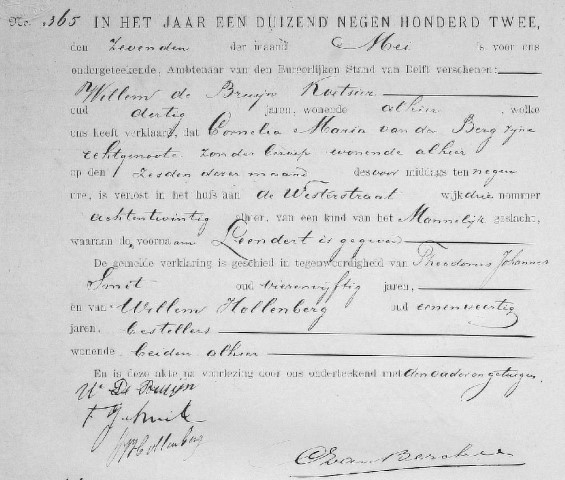 No. 365 IN HET JAAR EEN DUIZEND NEGEN HONDERD TWEE,
den Zevenden der maand Mei 's voor ons
ondergeteekende, Ambtenaar van den Burgerlijken Stand van Delft verschenen:
Willem de Bruijn Kostuur
oud dertig jaren, wonende alhier, welke
ons heeft verklaard, dat Cornelia Maria van der Berg zijne
echtgenoote zonder beroep wonende alhier
op den zesden dezer maand des voor middags ten negen
ure, is verlost in het huis aan de Westerstraat wijk drie nummer
achtentwintig alhier, van een kind van het Mannelijk geslacht,
waaraan de voornaam Leendert is gegeven
De gemelde verklaring is geschied in tegenwoordigheid van Theodorus Johannes
Smit oud vierenvijftig jaren,
en van Willem Hollenberg oud eenenveertig
jaren, bestellers
wonende beiden alhier
En is deze akte na voorlezing door ons onderteekend met den vader en getuigen.
W De Bruijn
T. J. Smit
W Hollenberg